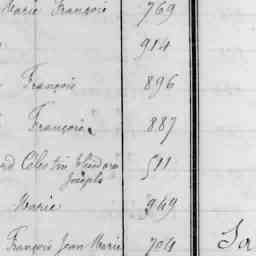 Marie François 769
914
François 896
François 887
Celestin Theodore 511
Joseph
Marie 949
François Jean Marie 704